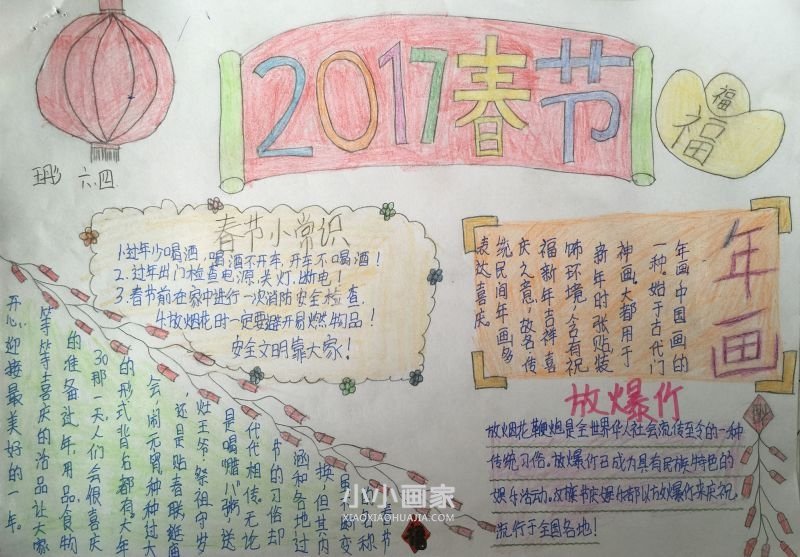 2017春节
福
福
六.四
春节小常识
1.过年少喝酒,喝酒不开车,开车不喝酒!
2.过年出门检查电源,关灯.断电!
3.春节前在家中进行一次消防安全检查.
4.放烟花时一定要避开易燃物品!
安全文明靠大家!
年画
年画中国画的
一种.始于古代门
神画.大都用于
新年时张贴装
饰环境,含有祝
福新年吉祥喜
庆之意,故名.传
统民间年画多
表达喜庆.
放爆竹
放烟花鞭炮是全世界华人社会流传至今的一种
传统习俗.放爆竹已成为具有民族特色的
娱乐活动.以放爆竹来庆祝.
流行于全国各地!
春节
换但其内
涵和各地过
节的习俗却
代代相传.无论
是喝"腊八"粥,送
灶王爷.祭祖守岁
,还是贴春联.逛庙
会.闹元宵.种种过大
的形式背名都有大年
30那一天.人们会很喜庆
的准备过年用品.食物
等等喜庆的活品让大家
开心迎接最美好的一年.
小小画家
XIAOXIAOHUAJIA.COM